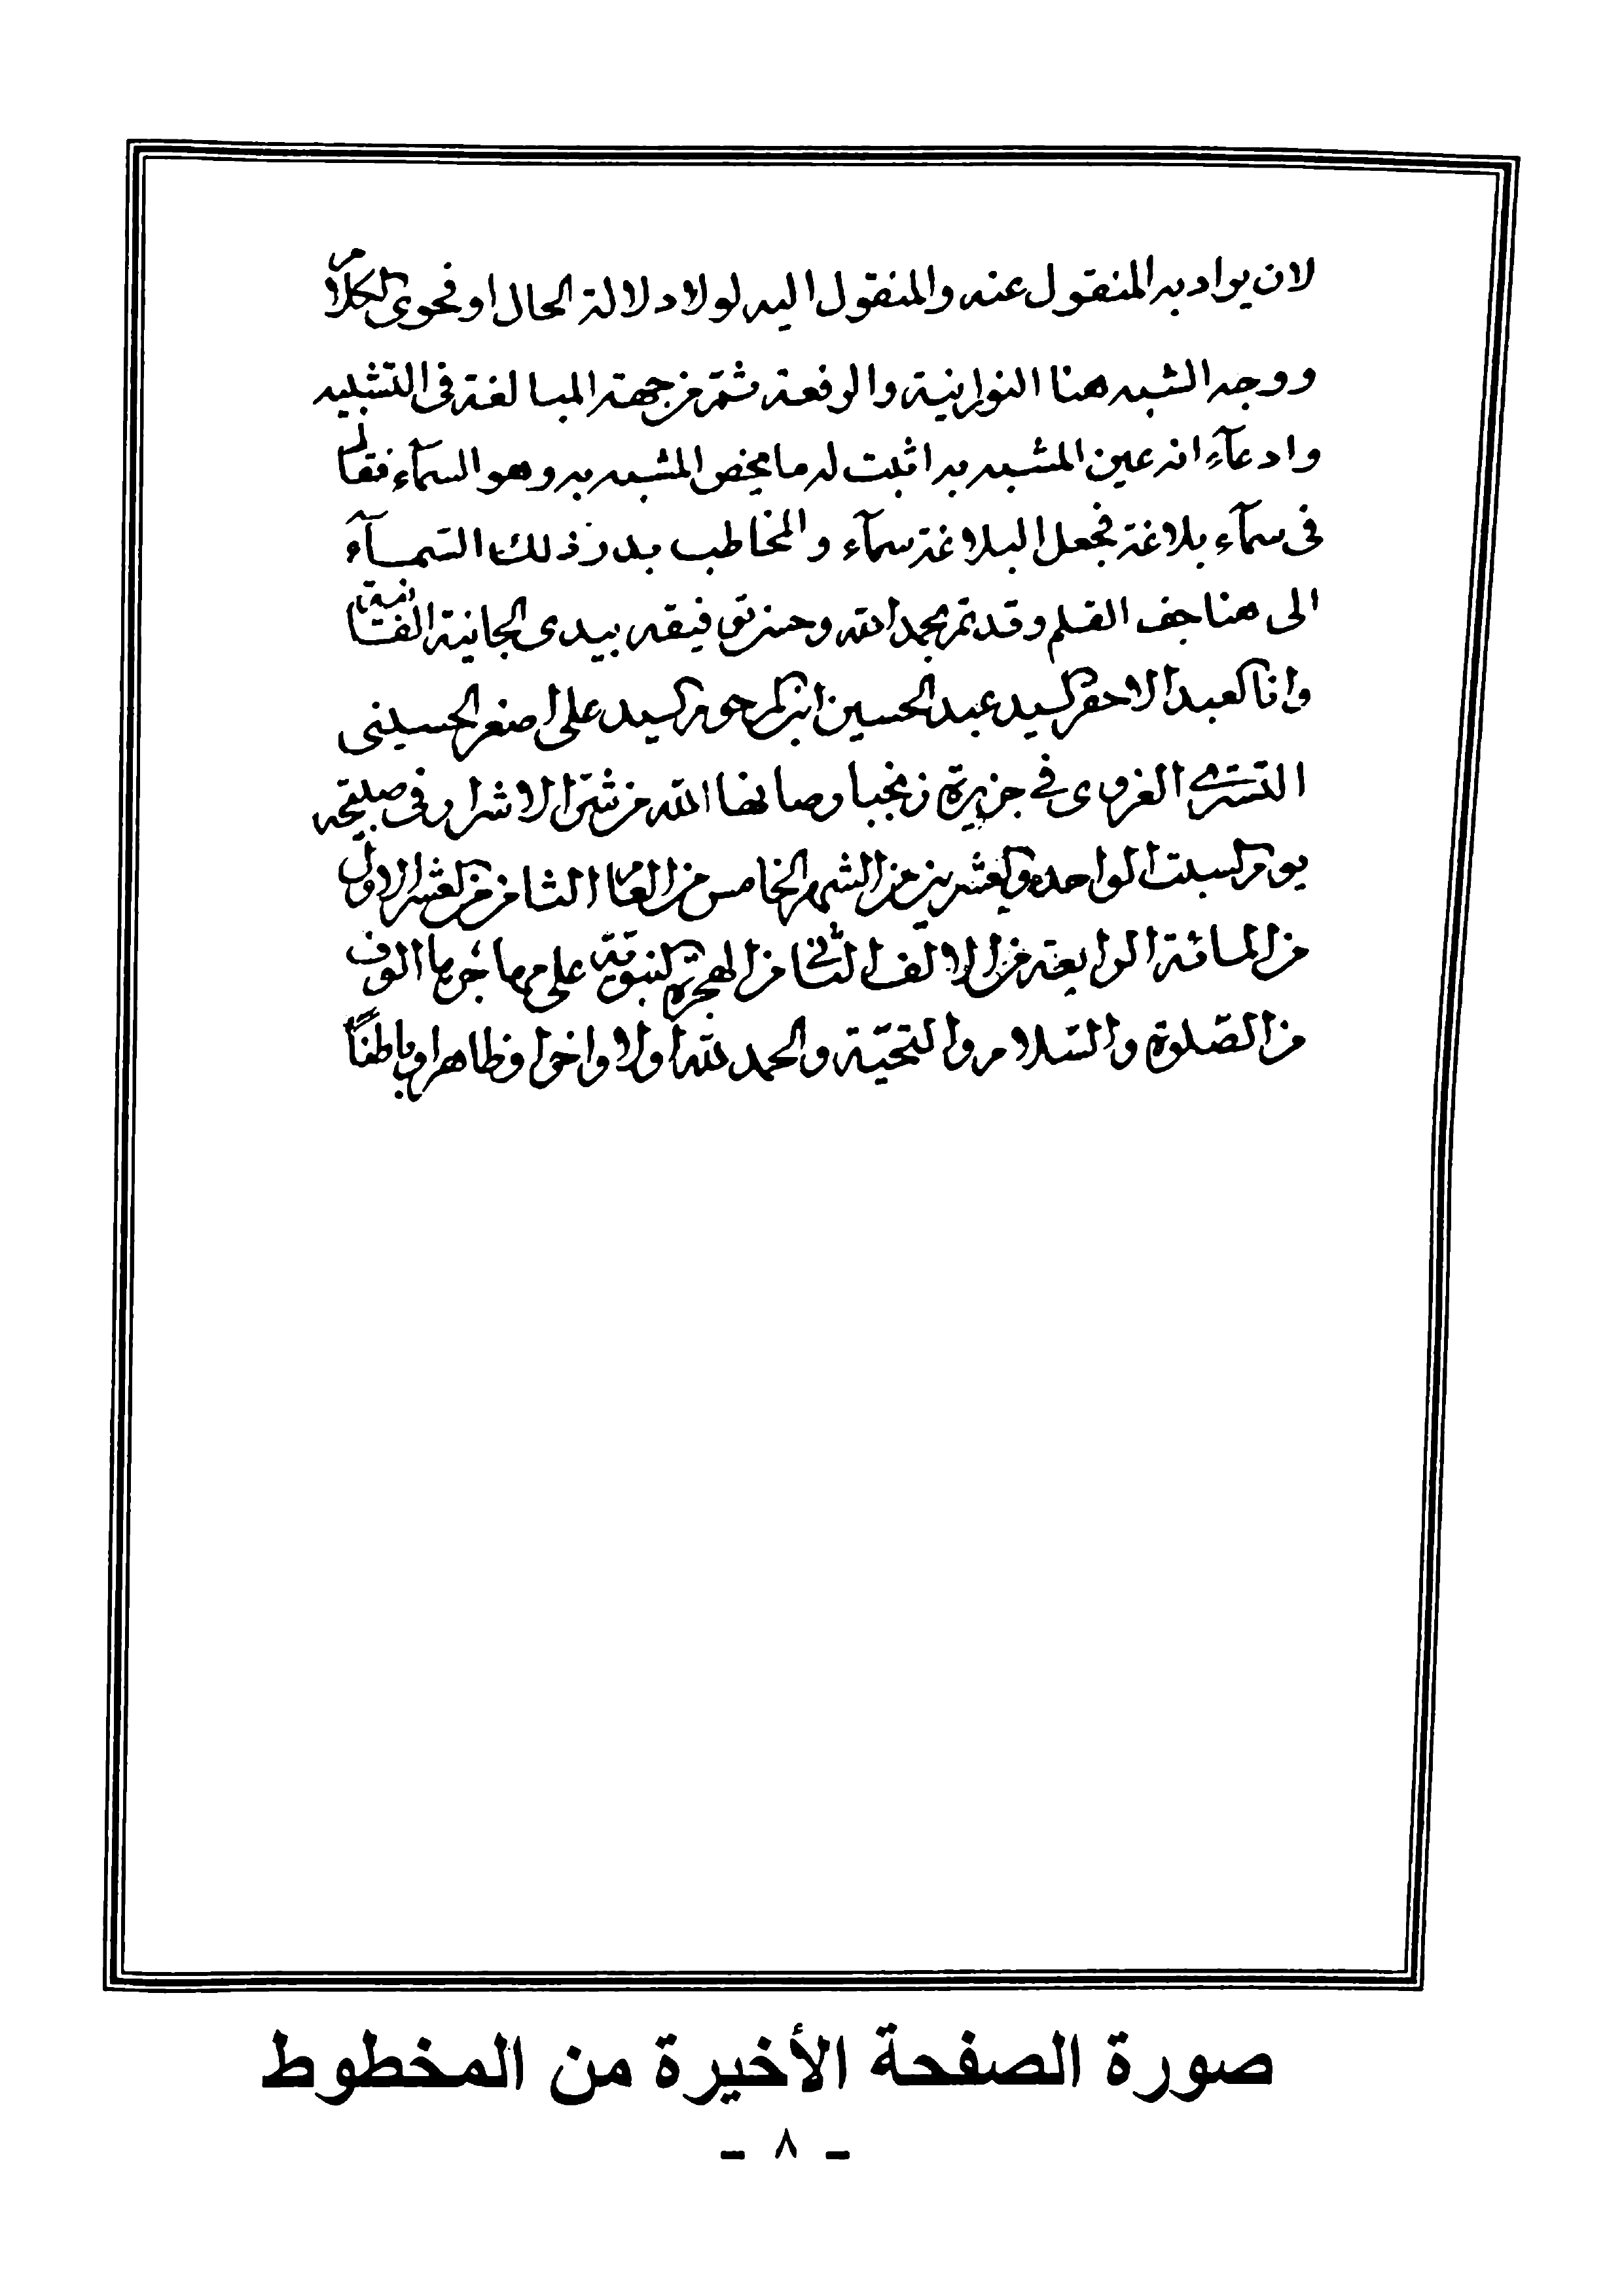 لان يراد به المنقول عنه والمنقول اليه لولا دلالة الحال او فحوى الكلام
ووجه الشبه هنا النورانية والرفعة ثم من جهة المبالغة فى التشبيه
وادعآء انه عين المشبه به اثبت له ما يخص المشبه به وهو السمآء فقال
فى سمآء بلاغة فجعل البلاغة سمآء والمخاطب بدر ذلك السمآء
الى هنا جف القلم وقد تم بحمد الله وحسن توفيقه بيدى الجانية الفانية
وانا العبد الاحقر السيد عبد الحسين ابن المرحوم السيد على اصغر الحسينى
التسترى الغروى فى جزيرة زنجبار صانها الله من شر الاشرار فى صبيحة
يوم السبت الواحد والعشرين من الشهر الخامس من العام الثامن من العشر الاول
من المائة الرابعة من الالف الثانى من الهجرة النبوية على مهاجرها الوف
من الصلوة والسلام والتحية والحمد لله اولا واخرا وظاهرا وباطنا
صورة الصفحة الأخيرة من المخطوط
- ٨ -